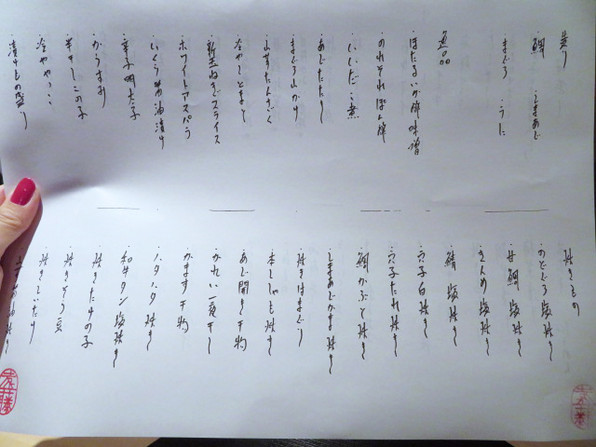 造り
・鯛 ・しまあじ
・まぐろ ・うに
・ほたるいか酢味噌
・のれそれぽん酢
・いいだこ煮
・あじたたき
・まぐろ山かけ
・山芋たんざく
・冷やしとまと
・新玉ねぎスライス
・ホワイトアスパラ
・いくら醤油漬け
・辛子明太子
・からすみ
・冷ややっこ
・漬けもの盛り
焼きもの
・のどぐろ塩焼き
・甘鯛 塩焼き
・きんめ塩焼き
・鯖 塩焼き
・穴子白焼き
・穴子たれ焼き
・鯛かぶと焼き
・しまあじかま焼き
・焼きはまぐり
・本ししゃも焼き
・あじ開き干物
・かれい一夜干し
・かます干物
・ハタハタ焼き
・和牛タン塩焼き
・焼きたけの子
・焼きそら豆
・焼きしいたけ